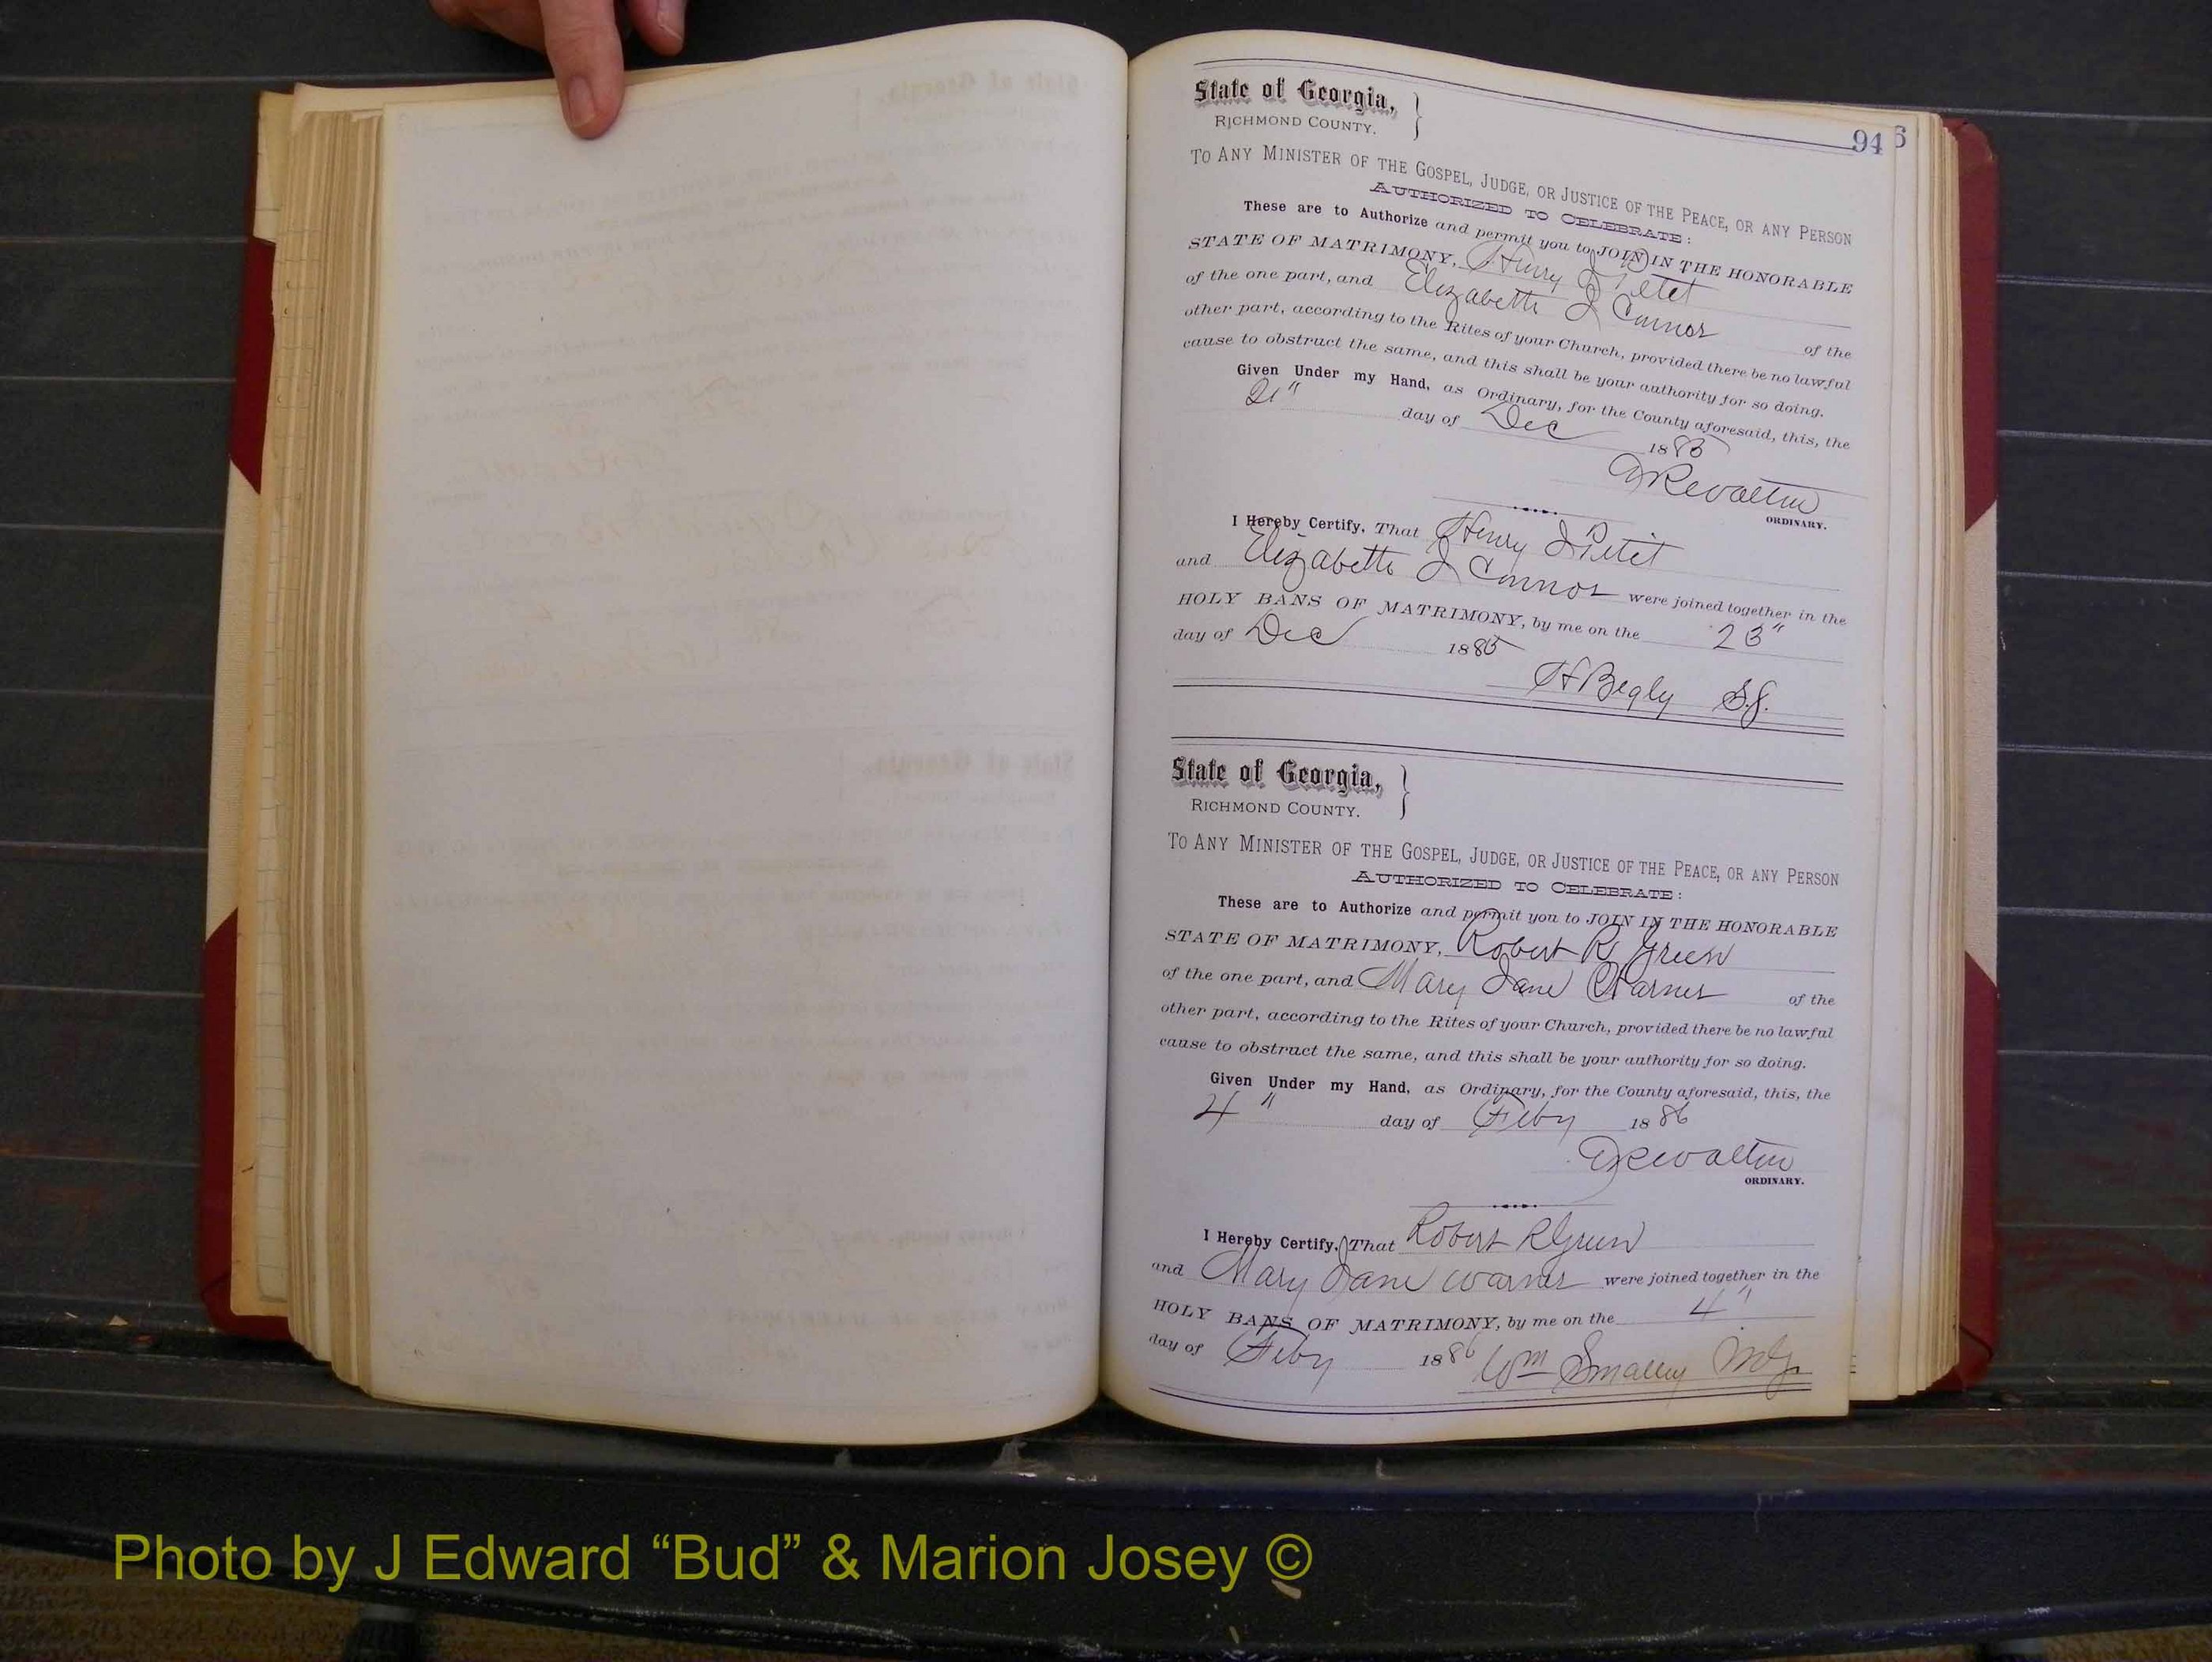 State of Georgia,
RICHMOND COUNTY.
94 6
TO ANY MINISTER OF THE GOSPEL, JUDGE, OR JUSTICE OF THE PEACE, OR ANY PERSON
AUTHORIZED TO CELEBRATE:
These are to Authorize and permit you to JOIN IN THE HONORABLE
STATE OF MATRIMONY, Henry J Petet
of the one part, and Elizabeth J Connor of the
other part, according to the Rites of your Church, provided there be no lawful
cause to obstruct the same, and this shall be your authority for so doing.
Given Under my Hand, as Ordinary, for the County aforesaid, this, the
21" day of Dec 1885
Walton
ORDINARY.
I Hereby Certify, That Henry J Petit
and Elizabeth J Connor were joined together in the
HOLY BANS OF MATRIMONY, by me on the 23"
day of Dec 1885
H Begly S.J.
State of Georgia,
RICHMOND COUNTY.
TO ANY MINISTER OF THE GOSPEL, JUDGE, OR JUSTICE OF THE PEACE, OR ANY PERSON
AUTHORIZED TO CELEBRATE:
These are to Authorize and permit you to JOIN IN THE HONORABLE
STATE OF MATRIMONY, Robert R Green
of the one part, and Mary Jane Warner of the
other part, according to the Rites of your Church, provided there be no lawful
cause to obstruct the same, and this shall be your authority for so doing.
Given Under my Hand, as Ordinary, for the County aforesaid, this, the
4" day of Feby 1886
Walton
ORDINARY.
I Hereby Certify, That Robert R Green
and Mary Jane Warner were joined together in the
HOLY BANS OF MATRIMONY, by me on the 4"
day of Feby 1886 Wm Smalley M.G.
Photo by J Edward “Bud” & Marion Josey ©